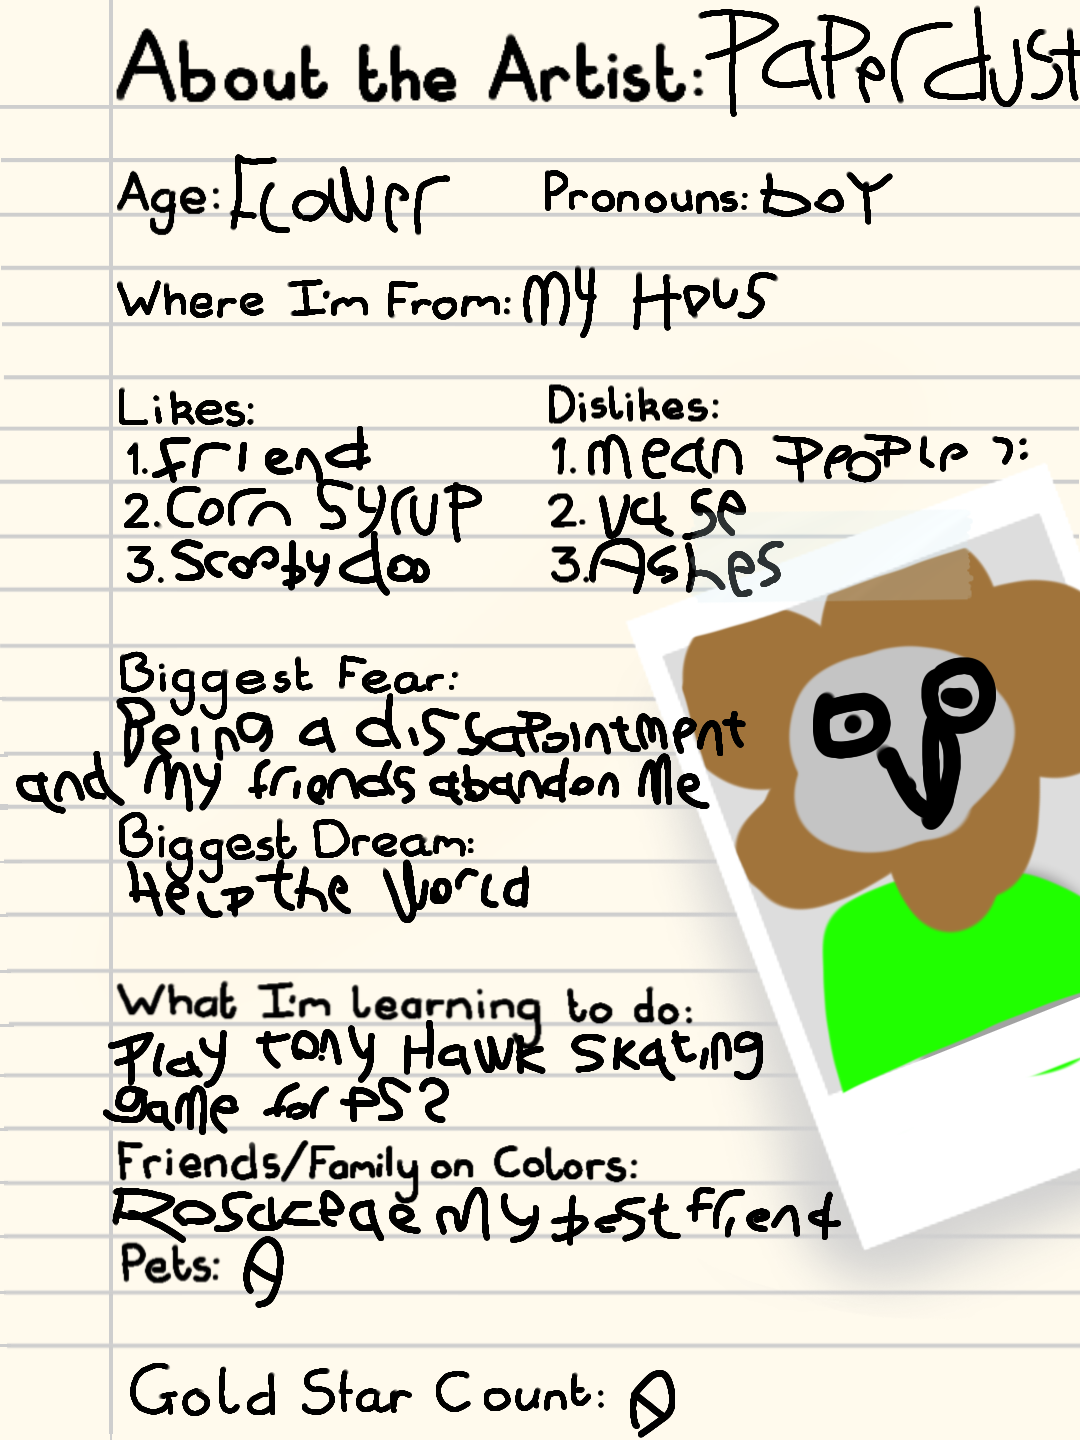 About the Artist: Paperdust
Age: Flower Pronouns: boy
Where I'm From: My Hous
Likes: Dislikes:
1. friend 1. mean People ):
2. Corn Syrup 2. Vase
3. Scooby doo 3. Ashes
Biggest Fear:
Being a dissapointment
and My friends abandon Me
Biggest Dream:
Help the World
What I'm learning to do:
Play tony Hawk Skating
game for PS2
Friends/Family on Colors:
Rosaceae My best friend
Pets: 0
Gold Star Count: 0